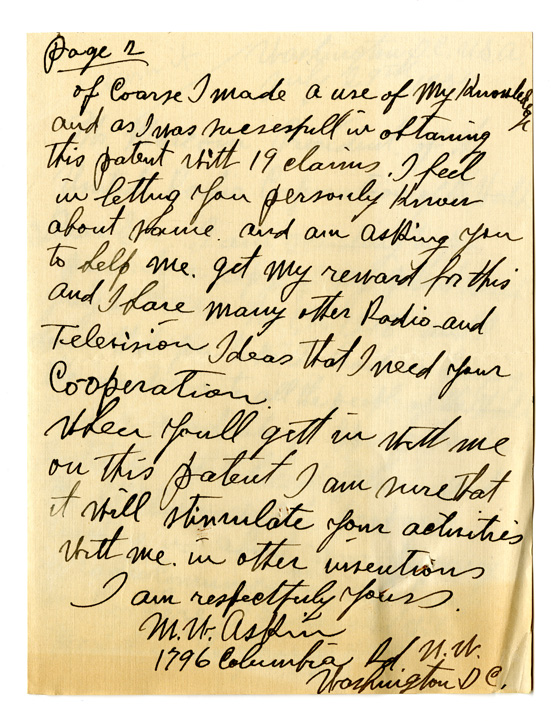 Page 2
of Coarse I made a use of my Knowledge
and as I was sucsesfull in obtaining
this patent with 19 claims. I feel
in letting you personly know
about same. and am asking you
to help me. get my reward for this
and I have many other Radio and
Television Ideas that I need your
Cooperation.
When youll gett in with me
on this patent I am sure that
it will stimulate your activities
with me. in other inventions
I am respectfuly yours.
M. W. Askin
1796 Columbia Rd. N.W.
Washington D C.